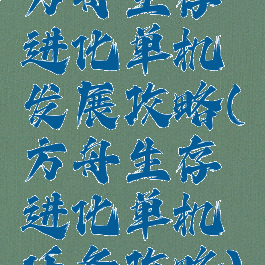 方舟生存
进化单机
发展攻略(
方舟生存
进化单机
任务攻略)